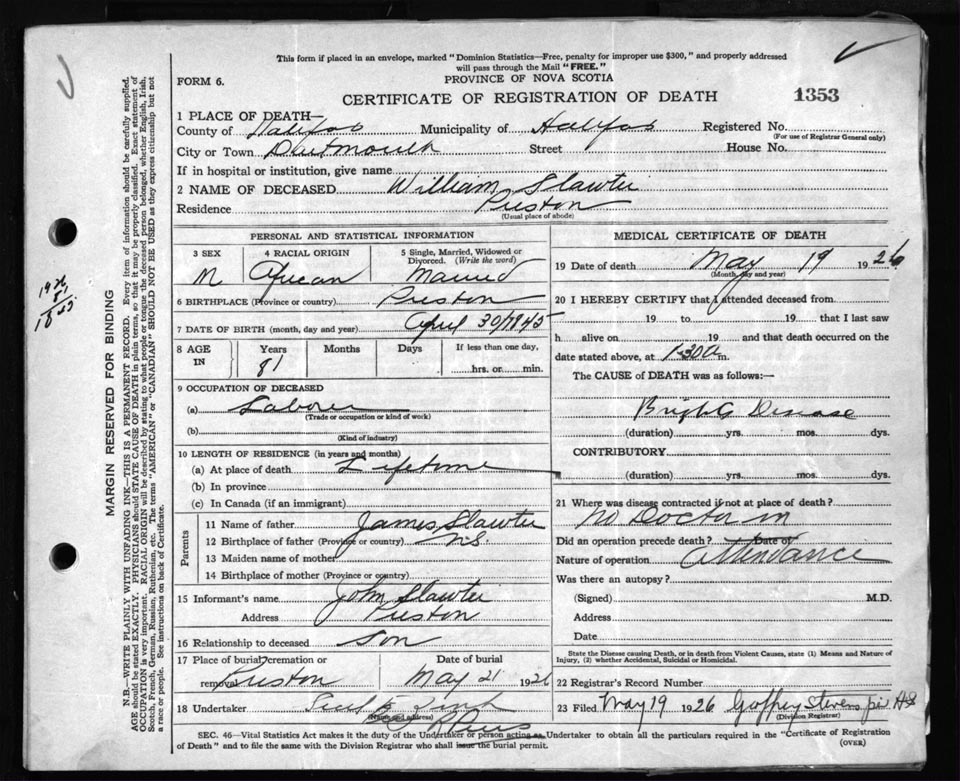 This form if placed in an envelope, marked "Dominion Statistics—Free, penalty for improper use $300," and properly addressed
will pass through the Mail "FREE."
FORM 6.
PROVINCE OF NOVA SCOTIA
CERTIFICATE OF REGISTRATION OF DEATH
1353
1 PLACE OF DEATH—
County of Halifax Municipality of Halifax Registered No.
(For use of Registrar General only)
City or Town Dartmouth Street House No.
If in hospital or institution, give name
2 NAME OF DECEASED William Slawter
Residence Preston
(Usual place of abode)
PERSONAL AND STATISTICAL INFORMATION
3 SEX 4 RACIAL ORIGIN 5 Single, Married, Widowed or
Divorced. (Write the word)
M African Married
6 BIRTHPLACE (Province or country) Preston
7 DATE OF BIRTH (month, day and year) April 30/1845
8 AGE IN Years Months Days If less than one day,
81 hrs. or min.
9 OCCUPATION OF DECEASED
(a) Laborer
(Trade or occupation or kind of work)
(b)
(Kind of industry)
10 LENGTH OF RESIDENCE (in years and months)
(a) At place of death Lifetime
(b) In province
(c) In Canada (if an immigrant)
Parents
11 Name of father James Slawter
12 Birthplace of father (Province or country) N.S.
13 Maiden name of mother
14 Birthplace of mother (Province or country)
15 Informant's name John Slawter
Address Preston
16 Relationship to deceased Son
17 Place of burial cremation or Date of burial
removal Preston May 21 1926
18 Undertaker
(Name and address)
MEDICAL CERTIFICATE OF DEATH
19 Date of death May 19 1926
(Month, day and year)
20 I HEREBY CERTIFY that I attended deceased from
19 to 19 that I last saw
h alive on 19 and that death occurred on the
date stated above, at 1-30 a m.
The CAUSE of DEATH was as follows:—
Brights Disease
(duration) yrs. mos. dys.
CONTRIBUTORY
(duration) yrs. mos. dys.
21 Where was disease contracted if not at place of death?
No Doctor in
Did an operation precede death? Date of
Nature of operation attendance
Was there an autopsy?
(Signed) M.D.
Address
Date
State the Disease causing Death, or in death from Violent Causes, state (1) Means and Nature of
Injury, (2) whether Accidental, Suicidal or Homicidal.
22 Registrar's Record Number
23 Filed May 19 1926
(Division Registrar)
SEC. 46—Vital Statistics Act makes it the duty of the Undertaker or person acting as Undertaker to obtain all the particulars required in the "Certificate of Registration
of Death" and to file the same with the Division Registrar who shall issue the burial permit.
(OVER)
MARGIN RESERVED FOR BINDING
N.B.—WRITE PLAINLY WITH UNFADING INK—THIS IS A PERMANENT RECORD. Every item of information should be carefully supplied.
AGE should be stated EXACTLY. PHYSICIANS should STATE CAUSE OF DEATH in plain terms, so that it may be properly classified. Exact statement of
OCCUPATION is very important. RACIAL ORIGIN will be described by stating to what people or tongue the deceased person belonged, whether English, Irish,
Scotch, French, German, Russian, Ruthenian, etc. The terms "AMERICAN" or "CANADIAN" SHOULD NOT BE USED as they express citizenship but not
a race or people. See instructions on back of Certificate.